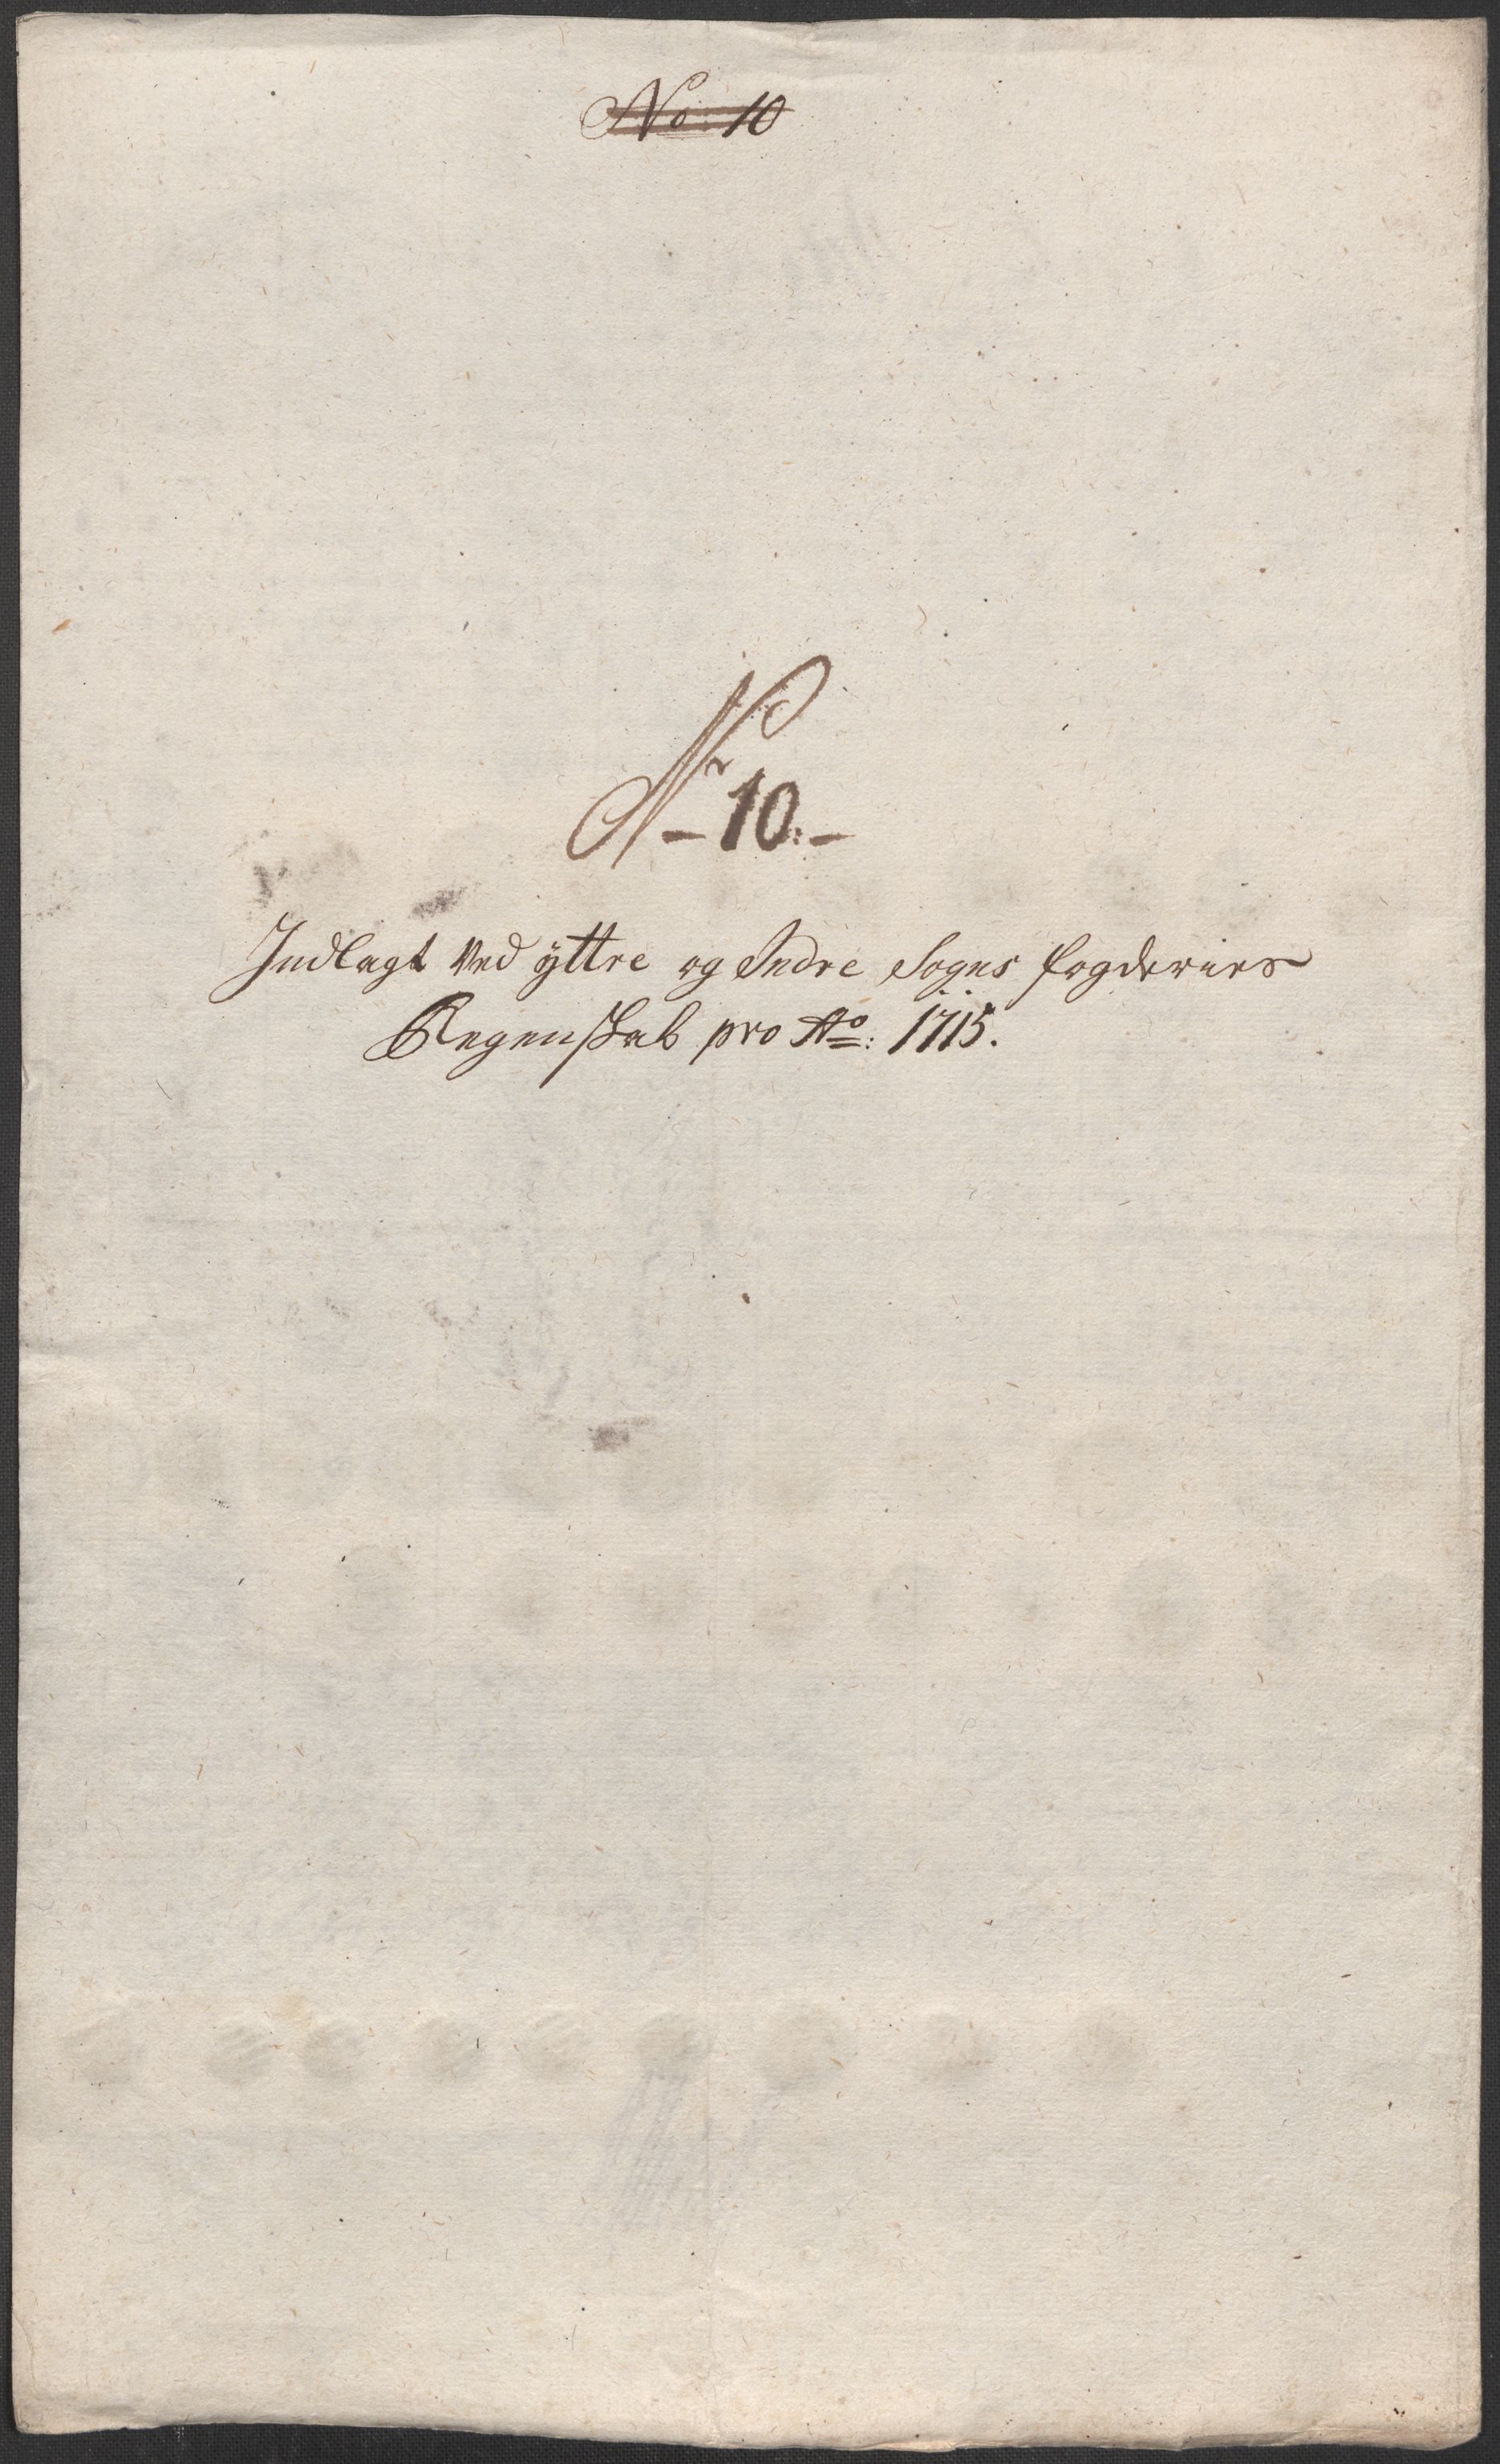 No: 10
Nr
- 10: -
Indlagt Ved ÿttre og Indre Sogns fogderiers
Regenskab pro Ao: 1715.